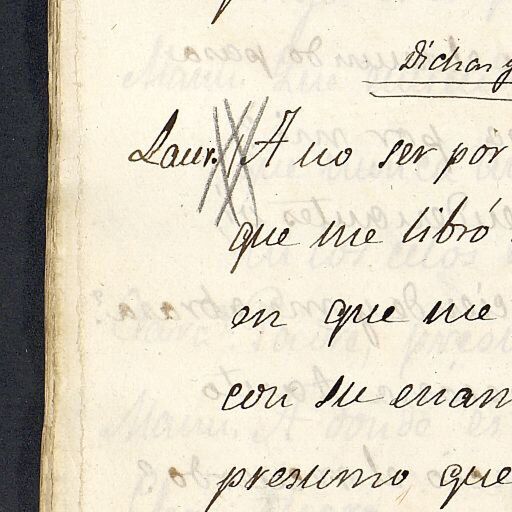 Dichas y
Laur. A no ser por
que me libró
en que me
con su enam
presumo que